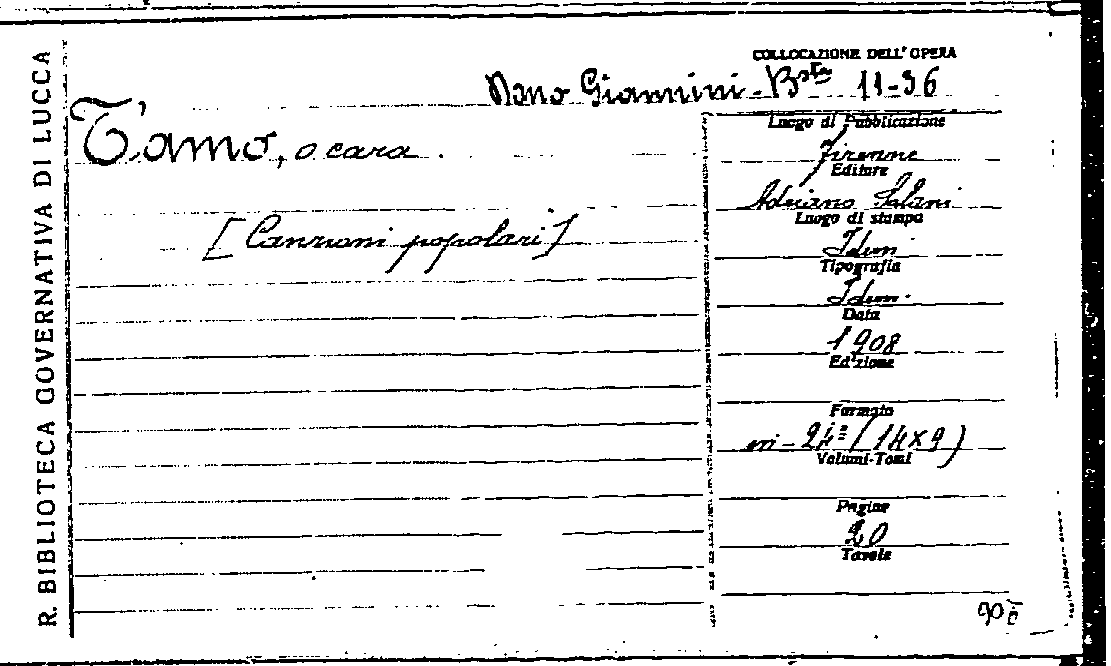 R. BIBLIOTECA GOVERNATIVA DI LUCCA
COLLOCAZIONE DELL'OPERA
Dono Giannini - Bsta 11-36
T'amo, o cara.
[Canzoni popolari]
Luogo di Pubblicazione
Firenze
Editore
Adriano Salani
Luogo di stampa
Idem
Tipografia
Idem.
Data
1908
Edizione
Formato
in-24º (14x9)
Volumi-Tomi
Pagine
20
Tavole